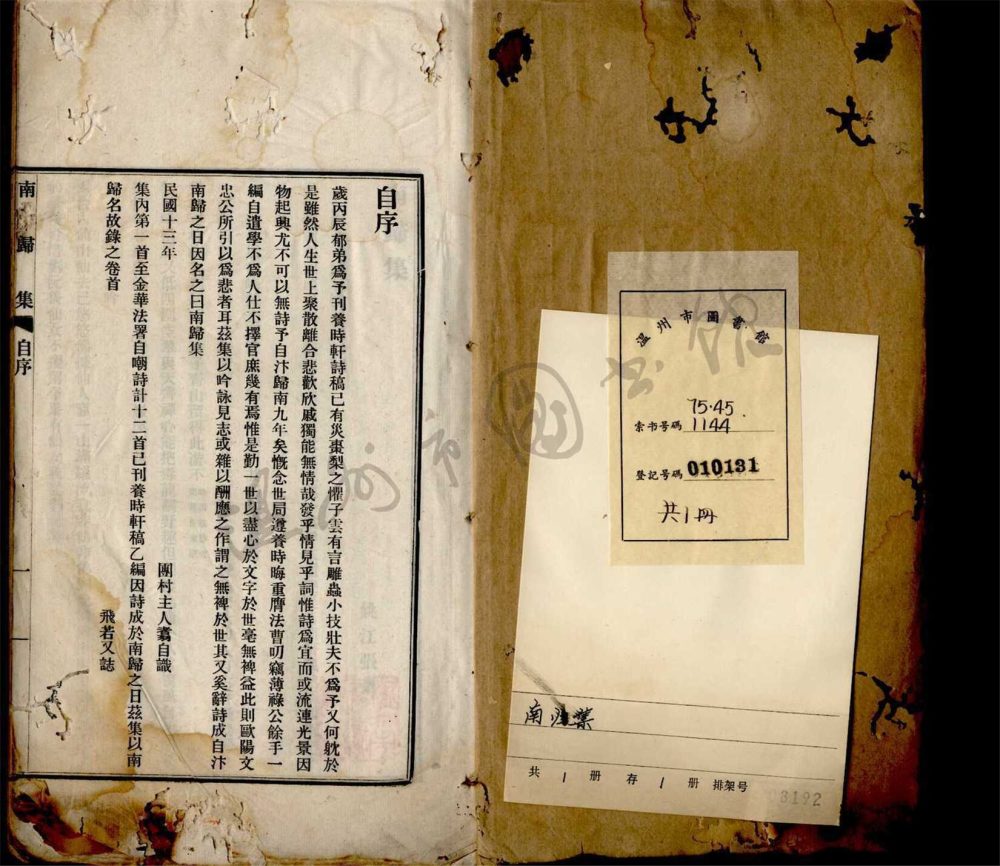 溫州市圖書館
75.45
索书号碼 1144
登记号碼 010131
共1冊
南归集
共 1 册 存 1 册 排架号
03192
自序
歲丙辰郁弟爲予刊養時軒詩稿已有災棗梨之懼子雲有言雕蟲小技壯夫不爲予又何躭於
是雖然人生世上聚散離合悲歡欣戚獨能無情哉發乎情見乎詞惟詩爲宜而或流連光景因
物起興尤不可以無詩予自汴歸南九年矣慨念世局遵養時晦重膺法曹叨竊薄祿公餘手一
編自遣學不爲人仕不擇官庶幾有焉惟是勤一世以盡心於文字於世毫無裨益此則歐陽文
忠公所引以爲悲者耳茲集以吟詠見志或雜以酬應之作謂之無裨於世其又奚辭詩成自汴
南歸之日因名之曰南歸集
民國十三年 團村主人翥自識
集內第一首至金華法署自嘲詩計十二首已刊養時軒稿乙編因詩成於南歸之日茲集以南
歸名故錄之卷首 飛若又誌
南歸集 自序 一
溫州市圖书館